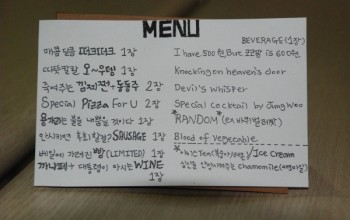 MENU
BEVERAGE (1장)
매콤달콤 떡크떡크 1장
I have 500원 But 코코팜 is 600원
따끈말랑 오~우뎅 1장
Knocking on heaven's door
죽여주는 김찌전+동동주 2장
Devil's Whisper
Special Pizza For U 2장
Special cocktail by Jung Woo
용기있는 자 을 내뿜을 것이다 1장
*RANDOM* (ex 바퀴벌레맛)
안시키면 후회할걸? SAUSAGE 1장
Blood of Vegetable
베일에 가려진 빵 (LIMITED) 1장
*아이스 Tea (복숭아/레몬) / ICE Cream
까나페 + 대통령이 마시는 WINE 1장
chamomile